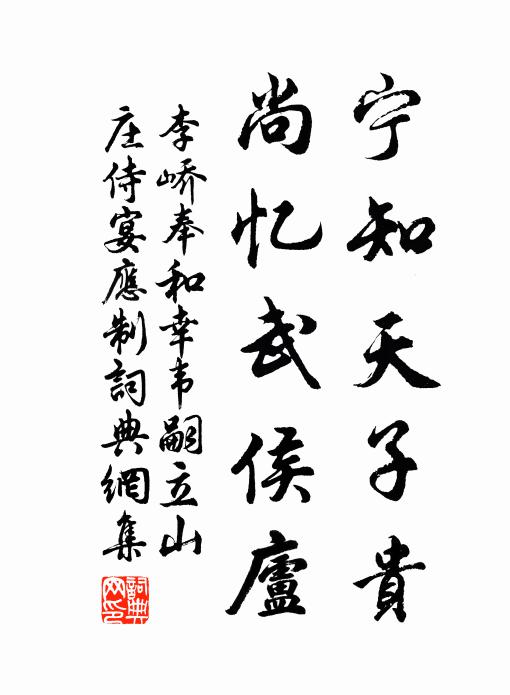 宁知天子貴
尚忆武侯廬
李嶠奉和幸韦嗣立山
庄侍宴應制詞典網集
詞典
网印